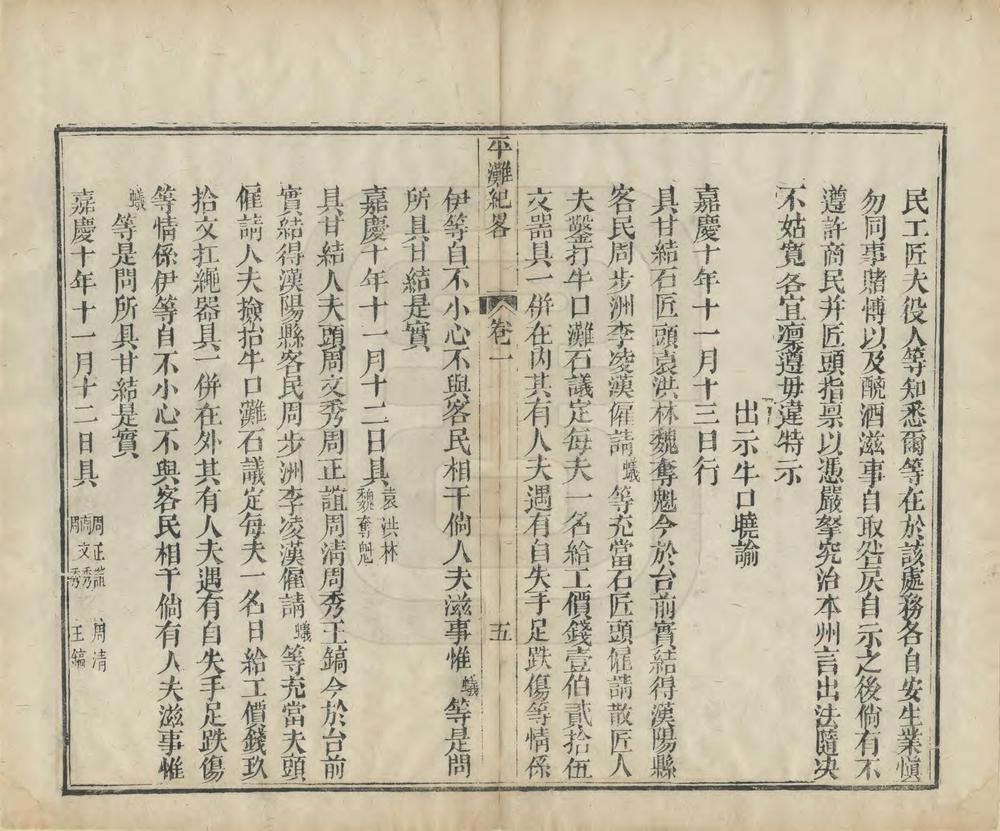 民工匠夫役人等知悉爾等在於該處務各自安生業慎
勿同事賭博以及酗酒滋事自取咎戾自示之後倘有不
遵許商民并匠頭指禀以憑嚴拏究治本州言出法隨决
不姑寬各宜凛遵毋違特示
出示牛口曉諭
嘉慶十年十一月十三日行
具甘結石匠頭袁洪林魏奪魁今於台前實結得漢陽縣
客民周步洲李凌漢僱請蟻等充當石匠頭僱請散匠人
夫鑿打牛口灘石議定每夫一名給工價錢壹伯貳拾伍
文器具一併在內其有人夫遇有自失手足跌傷等情係
平灘紀畧
卷一
五
伊等自不小心不與客民相干倘人夫滋事惟蟻等是問
所具甘結是實
嘉慶十年十一月十二日具袁洪林魏奪魁
具甘結人夫頭周文秀周正誼周清周秀王鎬今於台前
實結得漢陽縣客民周步洲李凌漢僱請蟻等充當夫頭
僱請人夫撿抬牛口灘石議定每夫一名日給工價錢玖
拾文扛繩器具一併在外其有人夫遇有自失手足跌傷
等情係伊等自不小心不與客民相干倘有人夫滋事惟
蟻等是問所具甘結是實
嘉慶十年十一月十二日具周正誼周文秀周秀周清王鎬